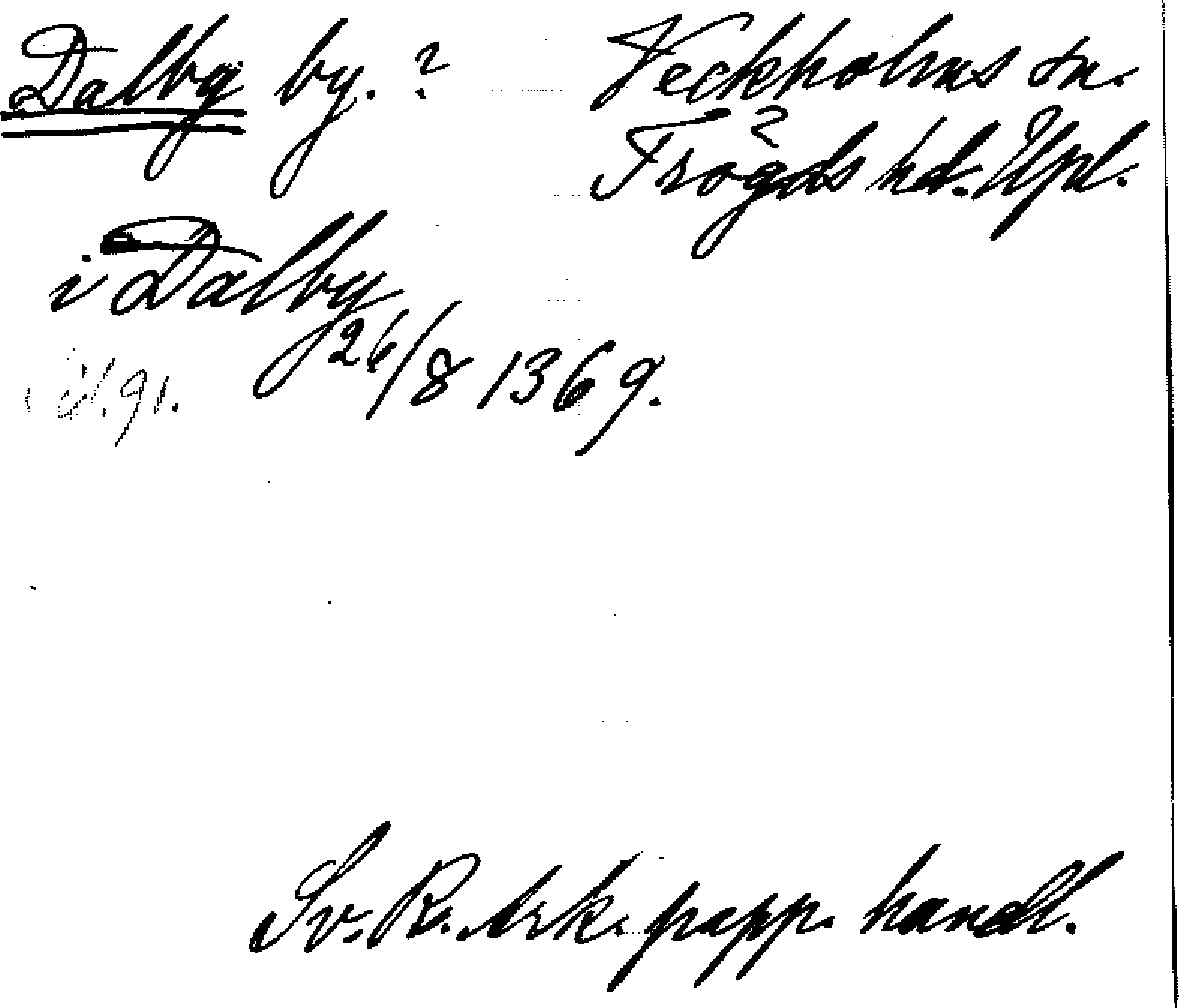 Dalby by. ? Veckholms sn.
Trögds hd. Upl.
i Dalby
26/8 1369.
Sv. R. Ark. papp. handl.